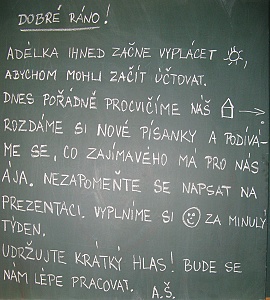 DOBRÉ RÁNO!
ADÉLKA IHNED ZAČNE VYPLÁCET ☼,
ABYCHOM MOHLI ZAČÍT ÚČTOVAT.
DNES POŘÁDNĚ PROCVIČÍME NÁŠ ⌂ →
ROZDÁME SI NOVÉ PÍSANKY A PODÍVÁ-
ME SE, CO ZAJÍMAVÉHO MÁ PRO NÁS
ÁJA. NEZAPOMEŇTE SE NAPSAT NA
PREZENTACI. VYPLNÍME SI ☺ ZA MINULÝ
TÝDEN.
UDRŽUJTE KRÁTKÝ HLAS! BUDE SE
NAM LÉPE PRACOVAT. A.Š.